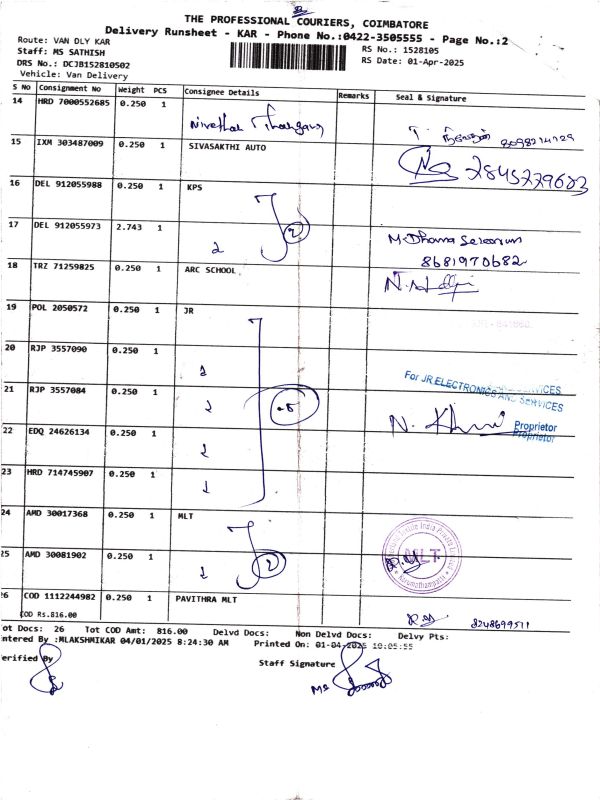 THE PROFESSIONAL COURIERS, COIMBATORE
Delivery Runsheet - KAR - Phone No.:0422-3505555 - Page No.:2
Route: VAN DLY KAR
RS No.: 1528105
Staff: MS SATHISH
RS Date: 01-Apr-2025
DRS No.: DCJB152810502
Vehicle: Van Delivery
S No Consignment No Weight PCS Consignee Details Remarks Seal & Signature
14 HRD 7000552685 0.250 1
15 IXM 303487009 0.250 1 SIVASAKTHI AUTO
16 DEL 912055988 0.250 1 KPS
2
17 DEL 912055973 2.743 1
2
M. Dhana
8681970682
18 TRZ 71259825 0.250 1 ARC SCHOOL
19 POL 2050572 0.250 1 JR
20 RJP 3557090 0.250 1
21 RJP 3557084 0.250 1
For JR ELECTRONICS AND SERVICES
Proprietor
Proprietor
22 EDQ 24626134 0.250 1
23 HRD 714745907 0.250 1
24 AMD 30017368 0.250 1 MLT
MLT
25 AMD 30081902 0.250 1
2
26 COD 1112244982 0.250 1 PAVITHRA MLT
COD Rs.816.00
8248699511
Tot Docs: 26 Tot COD Amt: 816.00 Delvd Docs: Non Delvd Docs: Delvy Pts:
Entered By :MLAKSHMIKAR 04/01/2025 8:24:30 AM Printed On: 01-04-2025 10:05:55
Verified By
Staff Signature